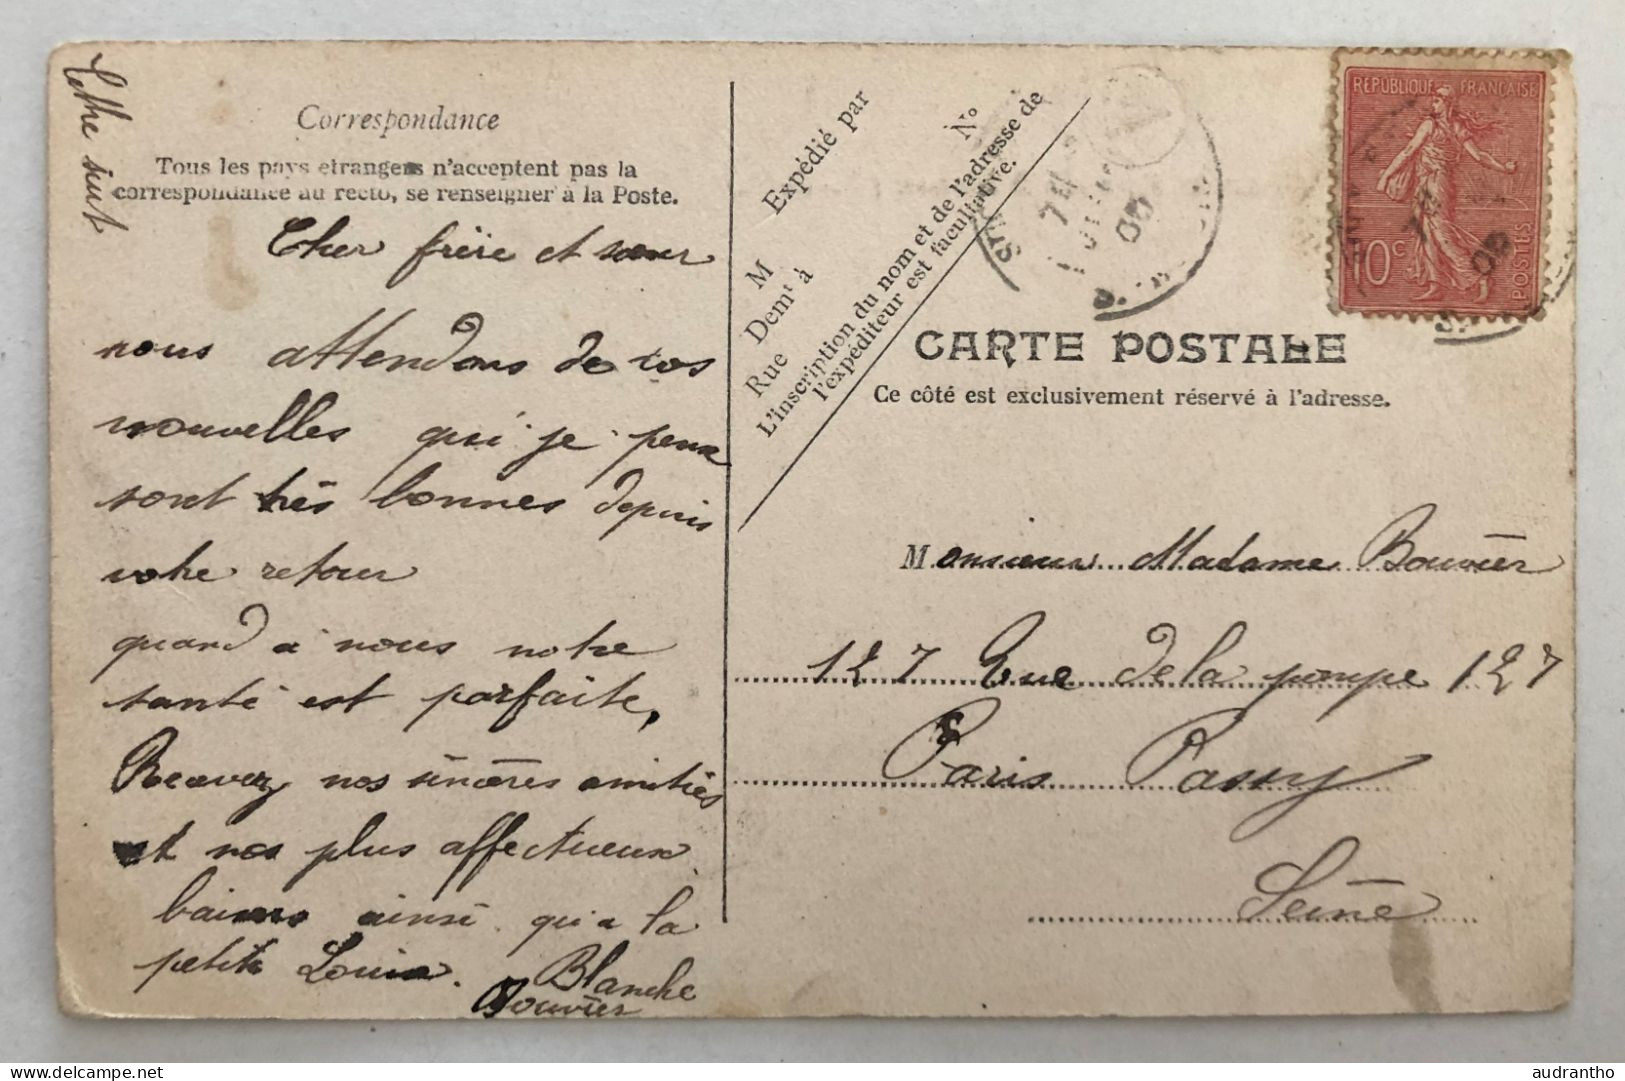 Correspondance
Tous les pays étrangers n'acceptent pas la
correspondance au recto, se renseigner à la Poste.
Cher frère et sœur
nous attendons de vos
nouvelles qui je peux
sont très bonnes depuis
votre retour
quand à nous notre
santé est parfaite,
Recevez nos sincères amitiés
et nos plus affectueux
baisers ainsi qui a la
petite Louise.
Blanche
Bouvier
Expédié par
M
Demt à
Rue
N°
L'inscription du nom et de l'adresse de
l'expéditeur est facultative.
RÉPUBLIQUE FRANÇAISE
10c
POSTES
CARTE POSTALE
Ce côté est exclusivement réservé à l'adresse.
Monsieur Madame Bouvier
127 Rue de la pompe 127
Paris Passy
Seine
audrantho